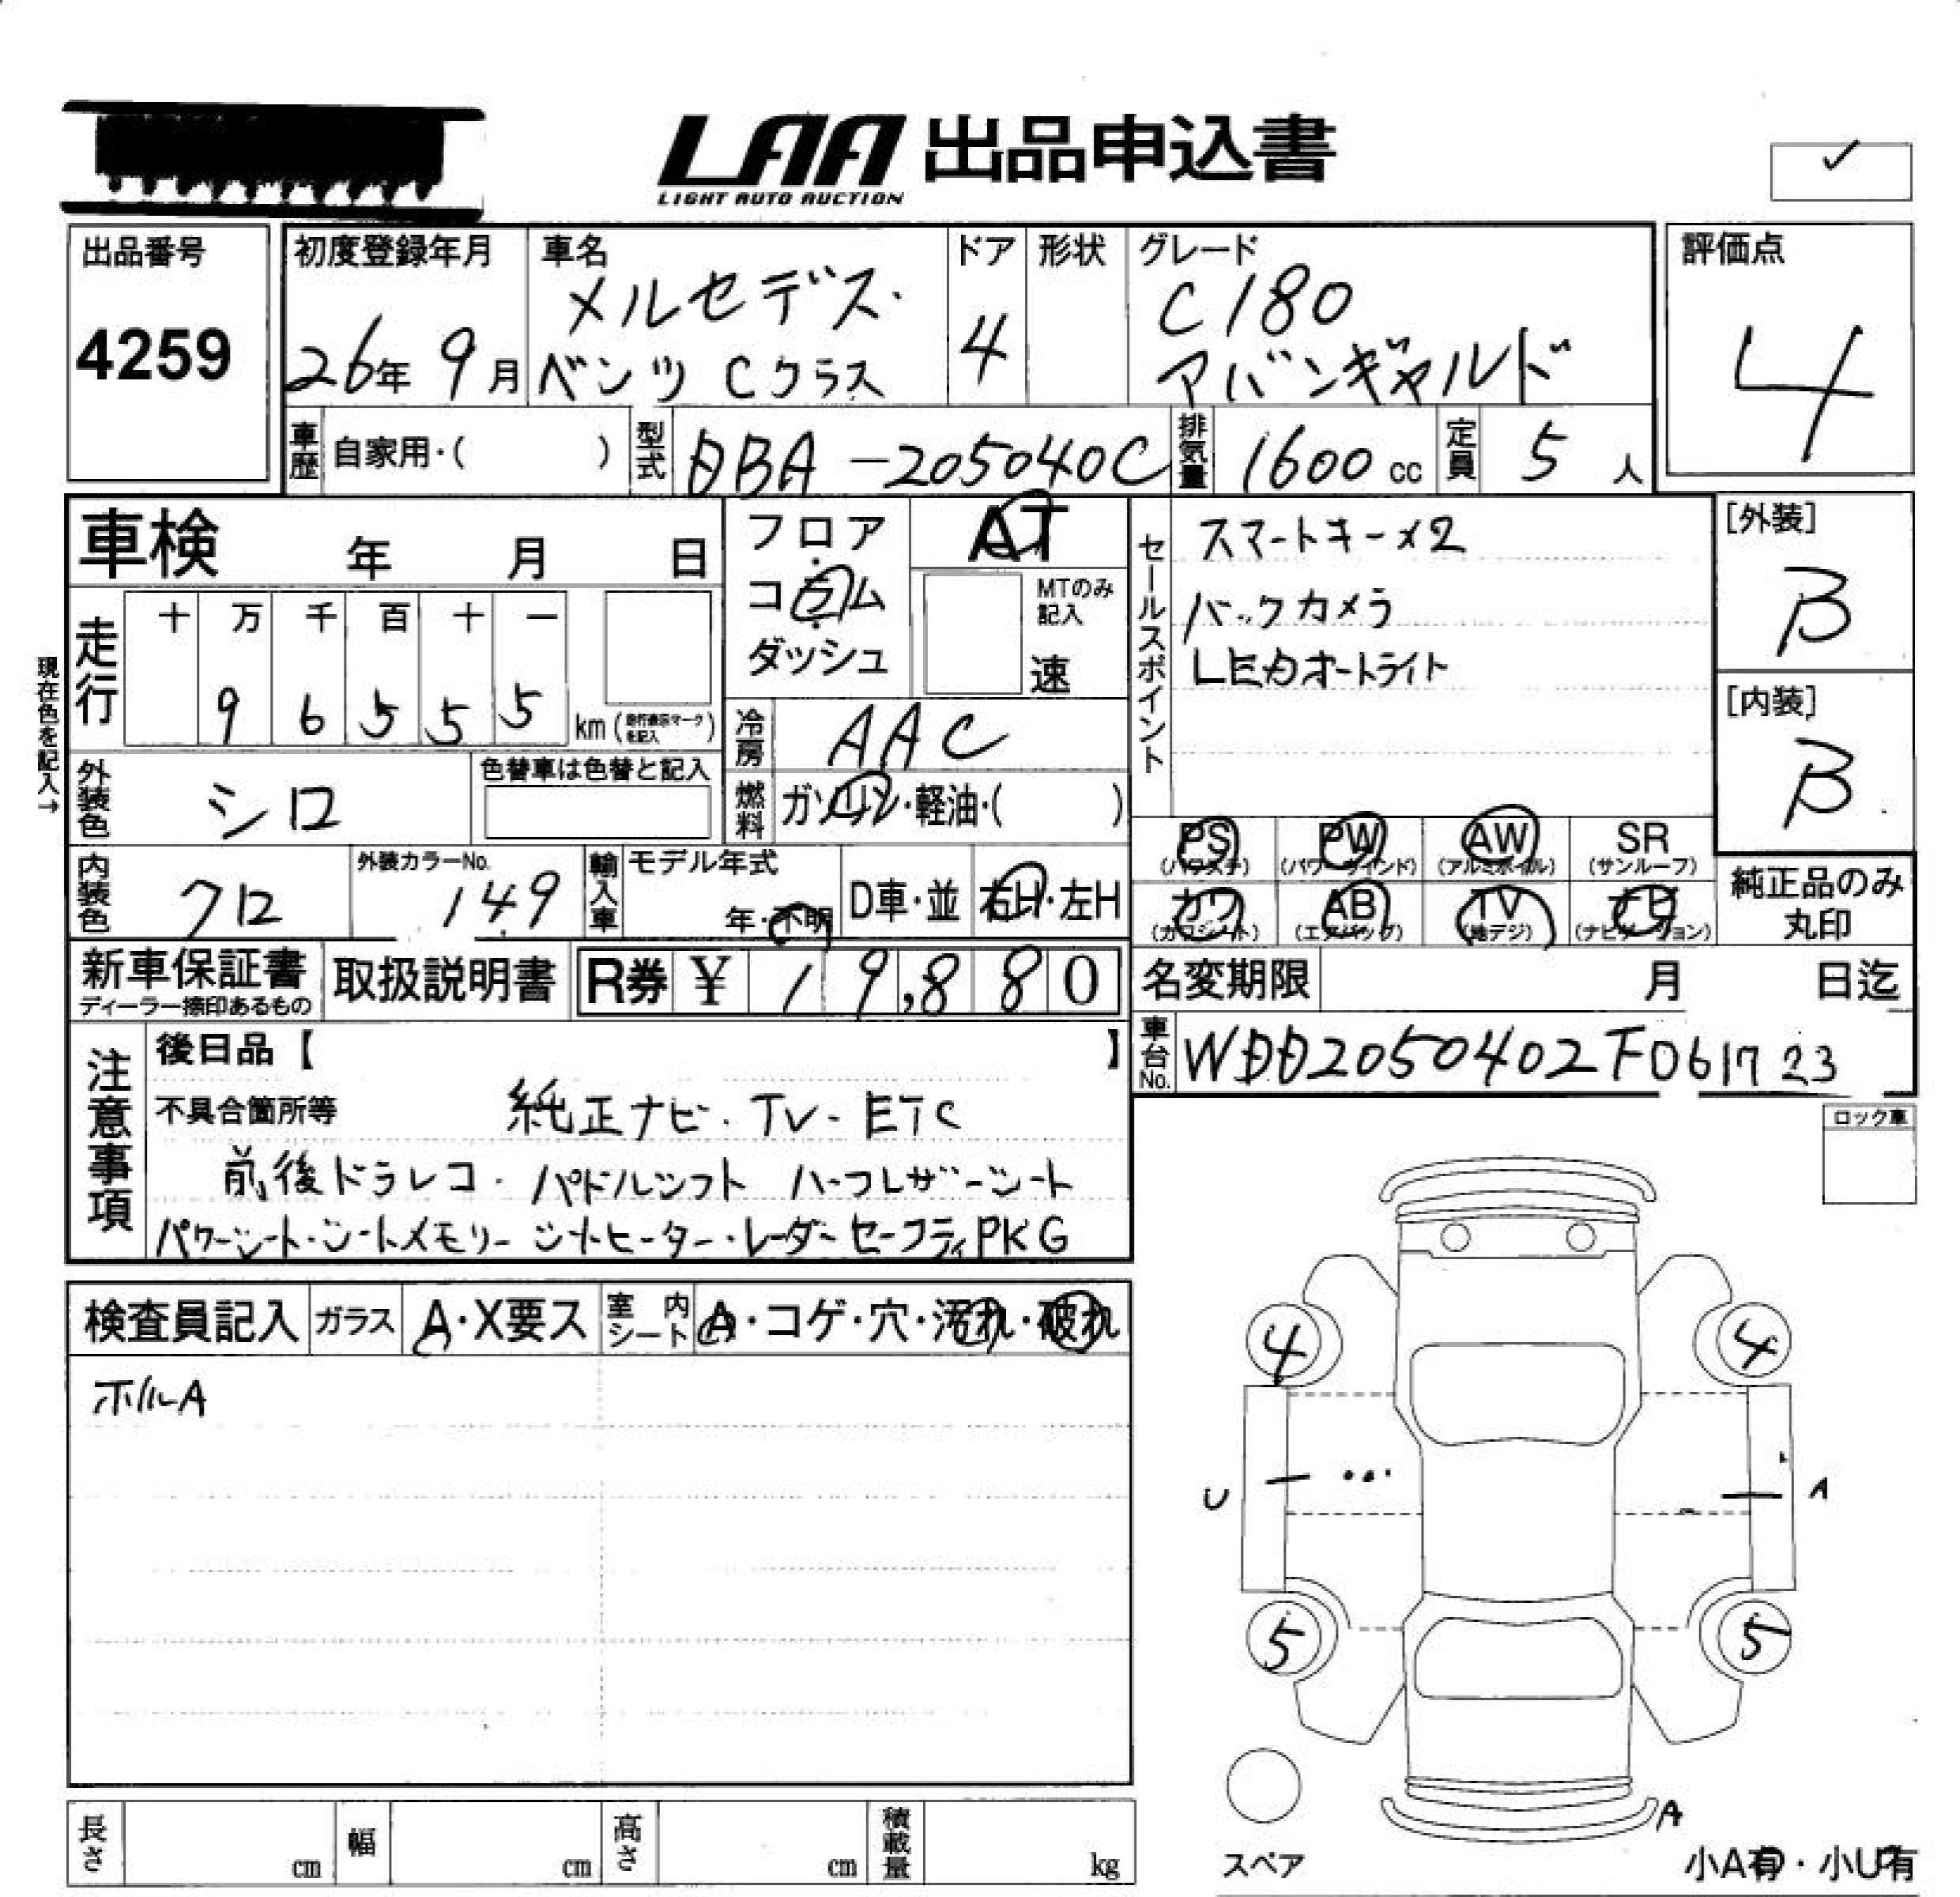 LAA 出品申込書
LIGHT AUTO AUCTION
出品番号
4259
初度登録年月
26年 9月
車名
メルセデス・
ベンツ Cクラス
ドア
4
形状
グレード
C180
アバンギャルド
評価点
4
車歴 自家用・( )
型式 DBA-205040C
排気量 1600 cc
定員 5 人
車検 年 月 日
フロア・コラム・ダッシュ
AT
MTのみ記入
速
セールスポイント
スマートキー×2
バックカメラ
LEDオートライト
[外装]
B
[内装]
B
現在色を記入→
走行
十 万 千 百 十 一
9 6 5 5 5 km
冷房 AAC
外装色 シロ
色替車は色替と記入
燃料 ガソリン・軽油・( )
PS (パワステ)
PW (パワーウインド)
AW (アルミホイル)
SR (サンルーフ)
カワ (カワシート)
AB (エアバッグ)
TV (地デジ)
ナビ (ナビゲーション)
純正品のみ丸印
内装色 クロ
外装カラーNo. 149
輸入車 モデル年式 年・不明
D車・並
右H・左H
新車保証書
ディーラー捺印あるもの
取扱説明書
R券 ¥ 19,880
名変期限 月 日迄
車台No. WDD2050402F061723
注意事項
後日品【 】
不具合箇所等 純正ナビ・TV・ETC
前後ドラレコ・パドルシフト ハーフレザーシート
パワーシート・シートメモリー シートヒーター・レーダーセーフティPKG
ロック車
検査員記入
ガラス A・X要ス
室内シート A・コゲ・穴・汚れ・破れ
ホイルA
4 4
U A
5 5
A
スペア
小A有・小U有
長さ cm
幅 cm
高さ cm
積載量 kg